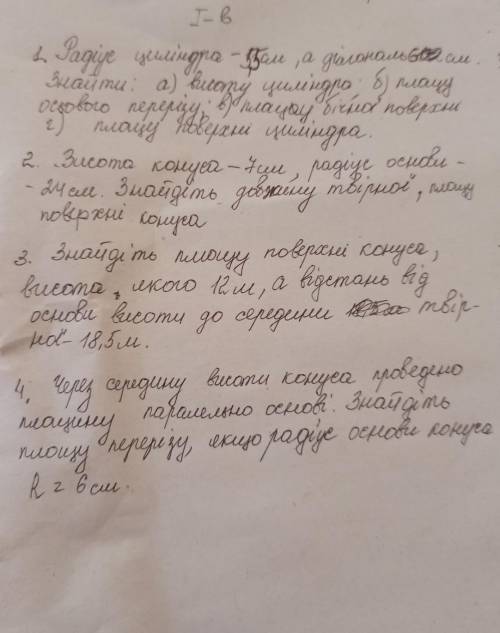 I-в
1. Радіус циліндра - см, а діагональ см.
Знайти: а) висоту циліндра б) площу
осьового перерізу; в) площу бічної поверхні
г) площу поверхні циліндра.
2. Висота конуса - 7см, радіус основи -
- 24 см. Знайдіть довжину твірної, площу
поверхні конуса
3. Знайдіть площу поверхні конуса,
висота якого 12м, а відстань від
основи висоти до середини твір-
ної - 18,5м.
4. Через середину висоти конуса проведено
площину паралельно основі. Знайдіть
площу перерізу, якщо радіус основи конуса
R = 6 см.